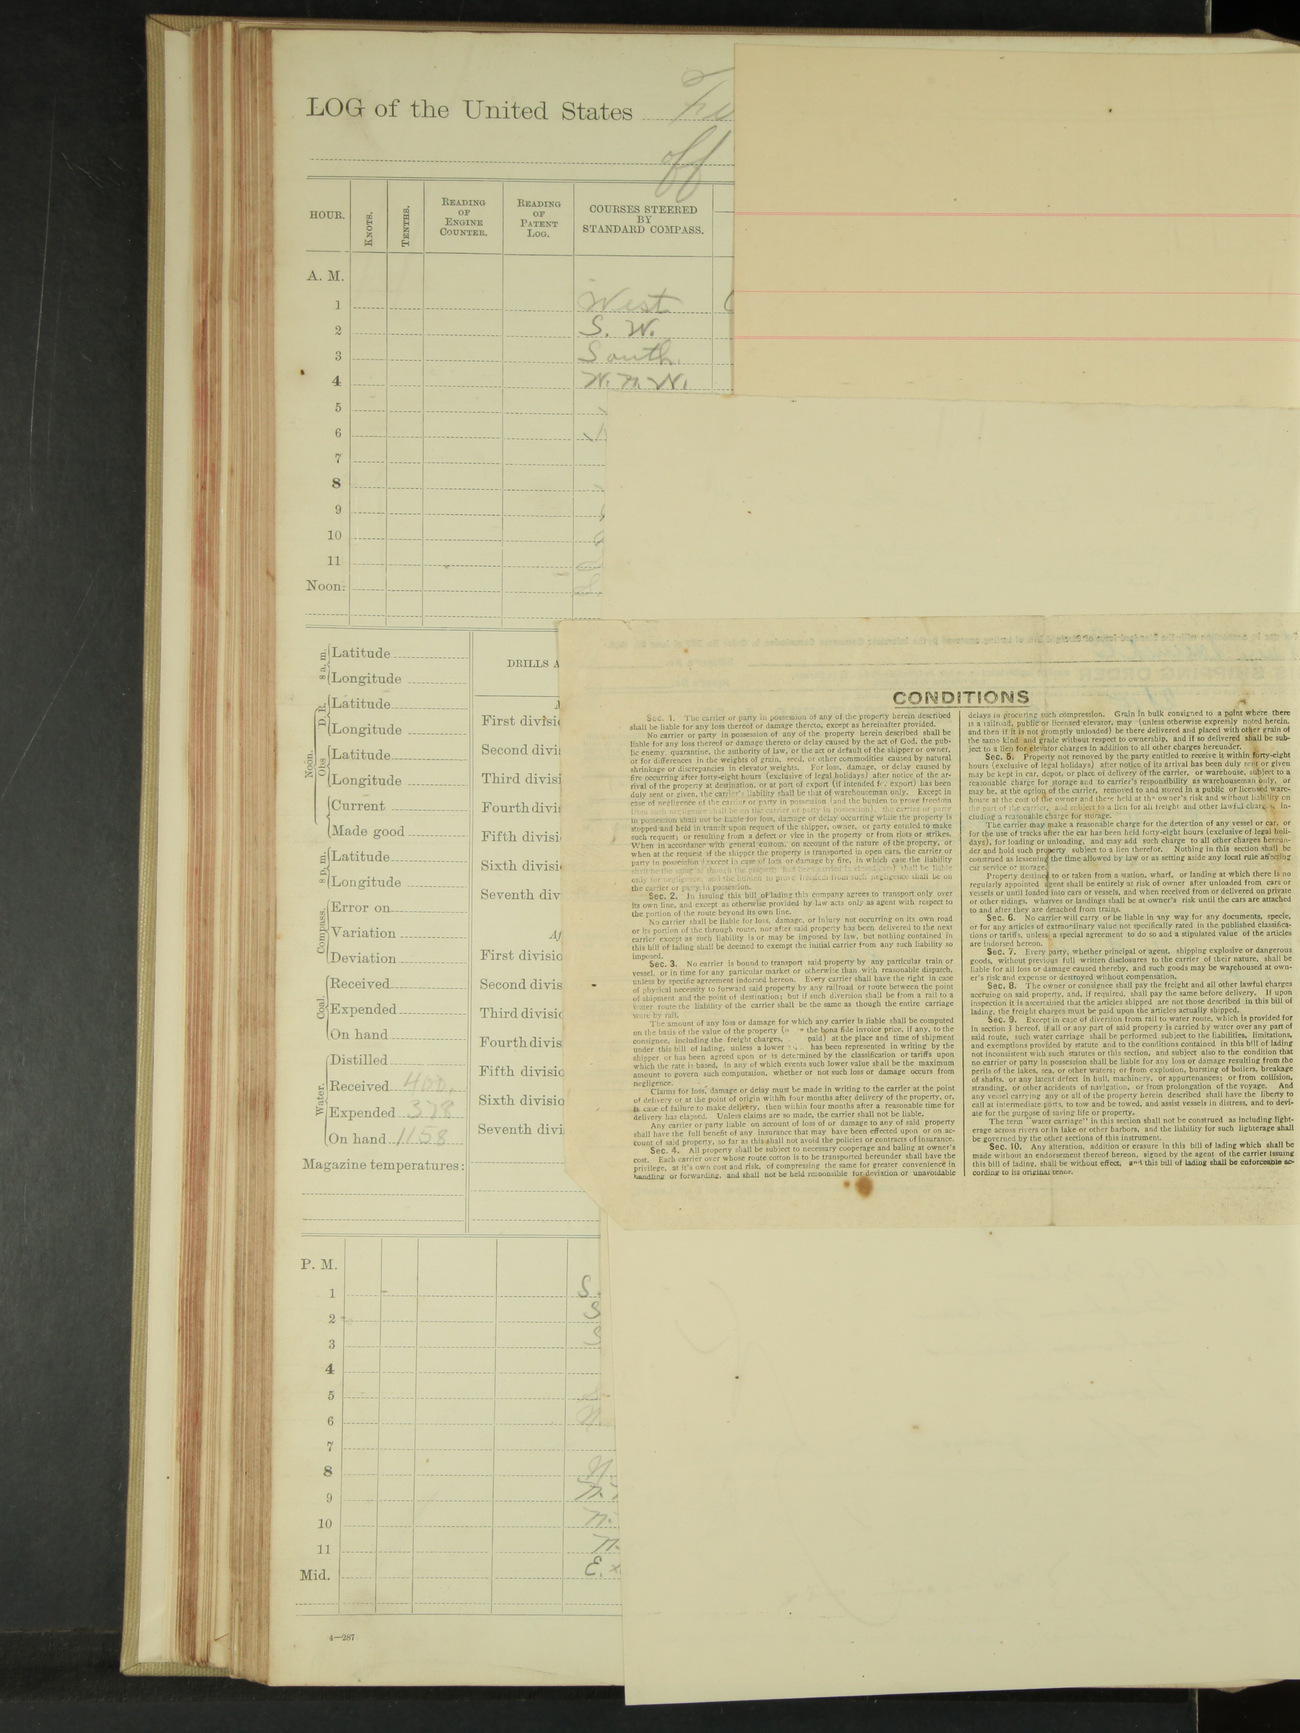 LOG of the United States
off
HOUR. KNOTS. TENTHS. READING OF ENGINE COUNTER. READING OF PATENT LOG. COURSES STEERED BY STANDARD COMPASS.
A. M.
1 West
2 S. W.
3 South.
4 W. N. W.
5
6
7
8
9
10
11
Noon.
8 a. m. Latitude
Longitude
Noon. D. R. Latitude
Longitude
Obs Latitude
Longitude
Current
Made good
8 p. m. Latitude
Longitude
Compass. Error on
Variation
Deviation
Coal. Received
Expended
On hand
Water. Distilled
Received 400.
Expended 378
On hand 1158
Magazine temperatures:
DRILLS A
First divisi
Second divi
Third divisi
Fourth divi
Fifth divisi
Sixth divisi
Seventh div
Af
First divisio
Second divis
Third divisi
Fourth divis
Fifth divisio
Sixth divisio
Seventh divi
P. M.
1 S.
2 S
3 S
4
5
6
7
8 N.
9
10 N.
11 N.
Mid. E.
4—287
CONDITIONS
Sec. 1. The carrier or party in possession of any of the property herein described
shall be liable for any loss thereof or damage thereto, except as hereinafter provided.
No carrier or party in possession of any of the property herein described shall be
liable for any loss thereof or damage thereto or delay caused by the act of God, the pub-
lic enemy, quarantine, the authority of law, or the act or default of the shipper or owner,
or for differences in the weights of grain, seed, or other commodities caused by natural
shrinkage or discrepancies in elevator weights. For loss, damage, or delay caused by
fire occurring after forty-eight hours (exclusive of legal holidays) after notice of the ar-
rival of the property at destination, or at port of export (if intended for export) has been
duly sent or given, the carrier's liability shall be that of warehouseman only. Except in
case of negligence of the carrier or party in possession (and the burden to prove freedom
from such negligence shall be on the carrier or party in possession), the carrier or party
in possession shall not be liable for loss, damage or delay occurring while the property is
stopped and held in transit upon request of the shipper, owner, or party entitled to make
such request; or resulting from a defect or vice in the property or from riots or strikes.
When in accordance with general custom, on account of the nature of the property, or
when at the request of the shipper the property is transported in open cars, the carrier or
party in possession (except in case of loss or damage by fire, in which case the liability
shall be the same as though the property had been carried in closed cars) shall be liable
only for negligence, and the burden to prove freedom from such negligence shall be on
the carrier or party in possession.
Sec. 2. In issuing this bill of lading this company agrees to transport only over
its own line, and except as otherwise provided by law acts only as agent with respect to
the portion of the route beyond its own line.
No carrier shall be liable for loss, damage, or injury not occurring on its own road
or its portion of the through route, nor after said property has been delivered to the next
carrier except as such liability is or may be imposed by law, but nothing contained in
this bill of lading shall be deemed to exempt the initial carrier from any such liability so
imposed.
Sec. 3. No carrier is bound to transport said property by any particular train or
vessel, or in time for any particular market or otherwise than with reasonable dispatch,
unless by specific agreement indorsed hereon. Every carrier shall have the right in case
of physical necessity to forward said property by any railroad or route between the point
of shipment and the point of destination; but if such diversion shall be from a rail to a
water route the liability of the carrier shall be the same as though the entire carriage
were by rail.
The amount of any loss or damage for which any carrier is liable shall be computed
on the basis of the value of the property the bona fide invoice price, if any, to the
consignee, including the freight charges, paid) at the place and time of shipment
under this bill of lading, unless a lower has been represented in writing by the
shipper or has been agreed upon or is determined by the classification or tariffs upon
which the rate is based, in any of which events such lower value shall be the maximum
amount to govern such computation, whether or not such loss or damage occurs from
negligence.
Claims for loss, damage or delay must be made in writing to the carrier at the point
of delivery or at the point of origin within four months after delivery of the property, or,
in case of failure to make delivery, then within four months after a reasonable time for
delivery has elapsed. Unless claims are so made, the carrier shall not be liable.
Any carrier or party liable on account of loss of or damage to any of said property
shall have the full benefit of any insurance that may have been effected upon or on ac-
count of said property, so far as this shall not avoid the policies or contracts of insurance.
Sec. 4. All property shall be subject to necessary cooperage and baling at owner's
cost. Each carrier over whose route cotton is to be transported hereunder shall have the
privilege, at it's own cost and risk, of compressing the same for greater convenience in
handling or forwarding, and shall not be held responsible for deviation or unavoidable
delays in procuring such compression. Grain in bulk consigned to a point where there
is a railroad, public or licensed elevator, may (unless otherwise expressly noted herein,
and then if it is not promptly unloaded) be there delivered and placed with other grain of
the same kind and grade without respect to ownership, and if so delivered shall be sub-
ject to a lien for elevator charges in addition to all other charges hereunder.
Sec. 5. Property not removed by the party entitled to receive it within forty-eight
hours (exclusive of legal holidays) after notice of its arrival has been duly sent or given
may be kept in car, depot, or place of delivery of the carrier, or warehouse, subject to a
reasonable charge for storage and to carrier's responsibility as warehouseman only, or
may be, at the option of the carrier, removed to and stored in a public or licensed ware-
house at the cost of the owner and there held at the owner's risk and without liability on
the part of the carrier, and subject to a lien for all freight and other lawful charges, in-
cluding a reasonable charge for storage.
The carrier may make a reasonable charge for the detention of any vessel or car, or
for the use of tracks after the car has been held forty-eight hours (exclusive of legal holi-
days), for loading or unloading, and may add such charge to all other charges hereun-
der and hold such property subject to a lien therefor. Nothing in this section shall be
construed as lessening the time allowed by law or as setting aside any local rule affecting
car service or storage.
Property destined to or taken from a station, wharf, or landing at which there is no
regularly appointed agent shall be entirely at risk of owner after unloaded from cars or
vessels or until loaded into cars or vessels, and when received from or delivered on private
or other sidings, wharves or landings shall be at owner's risk until the cars are attached
to and after they are detached from trains.
Sec. 6. No carrier will carry or be liable in any way for any documents, specie,
or for any articles of extraordinary value not specifically rated in the published classifica-
tions or tariffs, unless a special agreement to do so and a stipulated value of the articles
are indorsed hereon.
Sec. 7. Every party, whether principal or agent, shipping explosive or dangerous
goods, without previous full written disclosures to the carrier of their nature, shall be
liable for all loss or damage caused thereby, and such goods may be warehoused at own-
er's risk and expense or destroyed without compensation.
Sec. 8. The owner or consignee shall pay the freight and all other lawful charges
accruing on said property, and, if required, shall pay the same before delivery. If upon
inspection it is ascertained that the articles shipped are not those described in this bill of
lading, the freight charges must be paid upon the articles actually shipped.
Sec. 9. Except in case of diversion from rail to water route, which is provided for
in section 3 hereof, if all or any part of said property is carried by water over any part of
said route, such water carriage shall be performed subject to the liabilities, limitations,
and exemptions provided by statute and to the conditions contained in this bill of lading
not inconsistent with such statutes or this section, and subject also to the condition that
no carrier or party in possession shall be liable for any loss or damage resulting from the
perils of the lakes, sea, or other waters; or from explosion, bursting of boilers, breakage
of shafts, or any latent defect in hull, machinery, or appurtenances; or from collision,
stranding, or other accidents of navigation, or from prolongation of the voyage. And
any vessel carrying any or all of the property herein described shall have the liberty to
call at intermediate ports, to tow and be towed, and assist vessels in distress, and to devi-
ate for the purpose of saving life or property.
The term "water carriage" in this section shall not be construed as including light-
erage across rivers or in lake or other harbors, and the liability for such lighterage shall
be governed by the other sections of this instrument.
Sec. 10. Any alteration, addition or erasure in this bill of lading which shall be
made without an endorsement thereof hereon, signed by the agent of the carrier issuing
this bill of lading, shall be without effect, and this bill of lading shall be enforceable ac-
cording to its original tenor.